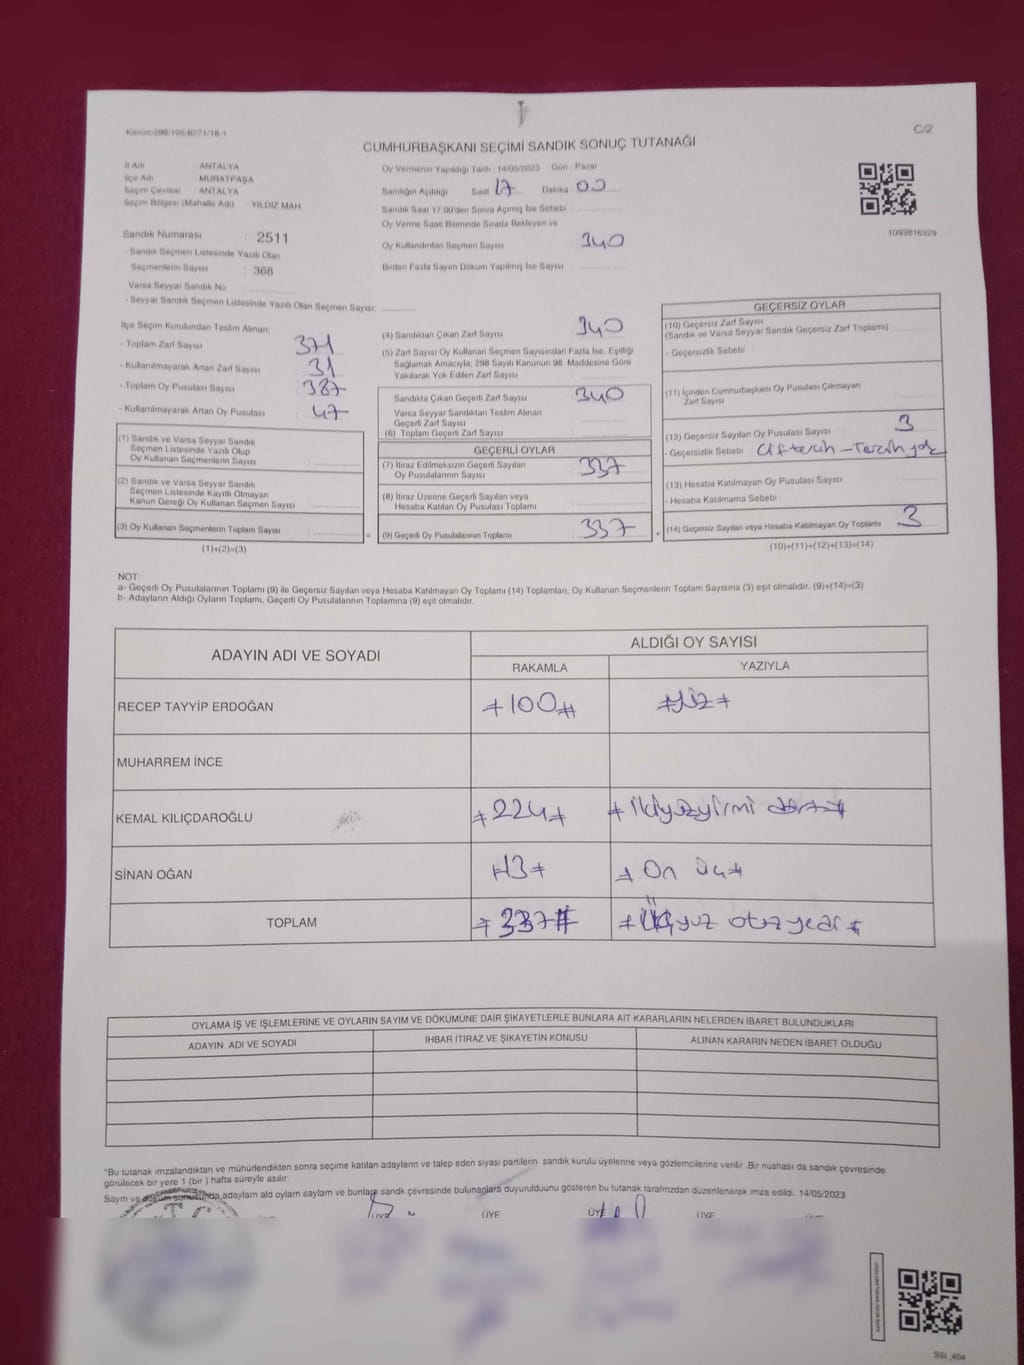 Kanun:298/105,6271/18-1
C/2
CUMHURBAŞKANI SEÇİMİ SANDIK SONUÇ TUTANAĞI
İl Adı : ANTALYA
İlçe Adı : MURATPAŞA
Seçim Çevresi : ANTALYA
Seçim Bölgesi (Mahalle Adı) : YILDIZ MAH.
Oy Vermenin Yapıldığı Tarih 14/05/2023 Gün : Pazar
Sandığın Açıldığı Saat 17 Dakika 00
Sandık Saat 17:00'den Sonra Açımış İse Sebebi
Oy Verme Saati Bitiminde Sırada Bekleyen ve
Oy Kullandırılan Seçmen Sayısı 340
Birden Fazla Sayım Döküm Yapılmış İse Sayısı :
1093816329
Sandık Numarası : 2511
- Sandık Seçmen Listesinde Yazılı Olan
Seçmenlerin Sayısı : 368
Varsa Seyyar Sandık No :
- Seyyar Sandık Seçmen Listesinde Yazılı Olan Seçmen Sayısı:
İlçe Seçim Kurulundan Teslim Alınan;
- Toplam Zarf Sayısı 371
- Kullanılmayarak Artan Zarf Sayısı : 31
- Toplam Oy Pusulası Sayısı : 387
- Kullanılmayarak Artan Oy Pusulası : 47
(1) Sandık ve Varsa Seyyar Sandık
Seçmen Listesinde Yazılı Olup
Oy Kullanan Seçmenlerin Sayısı :
(2) Sandık ve Varsa Seyyar Sandık
Seçmen Listesinde Kayıtlı Olmayan
Kanun Gereği Oy Kullanan Seçmen Sayısı :
(3) Oy Kullanan Seçmenlerin Toplam Sayısı :
(1)+(2)=(3)
(4) Sandıktan Çıkan Zarf Sayısı : 340
(5) Zarf Sayısı Oy Kullanan Seçmen Sayısından Fazla İse, Eşitliği
Sağlamak Amacıyla, 298 Sayılı Kanunun 98. Maddesine Göre
Yakılarak Yok Edilen Zarf Sayısı :
Sandıkta Çıkan Geçerli Zarf Sayısı : 340
Varsa Seyyar Sandıktan Teslim Alınan
Geçerli Zarf Sayısı :
(6) Toplam Geçerli Zarf Sayısı :
GEÇERLİ OYLAR
(7) İtiraz Edilmeksizin Geçerli Sayılan
Oy Pusulalarının Sayısı : 337
(8) İtiraz Üzerine Geçerli Sayılan veya
Hesaba Katılan Oy Pusulası Toplamı :
(9) Geçerli Oy Pusulalarının Toplamı : 337
GEÇERSİZ OYLAR
(10) Geçersiz Zarf Sayısı
(Sandık ve Varsa Seyyar Sandık Geçersiz Zarf Toplamı)
- Geçersizlik Sebebi :
(11) İçinden Cumhurbaşkanı Oy Pusulası Çıkmayan
Zarf Sayısı :
(12) Geçersiz Sayılan Oy Pusulası Sayısı 3
- Geçersizlik Sebebi :
(13) Hesaba Katılmayan Oy Pusulası Sayısı
- Hesaba Katılmama Sebebi :
(14) Geçersiz Sayılan veya Hesaba Katılmayan Oy Toplamı 3
(10)+(11)+(12)+(13)=(14)
NOT:
a- Geçerli Oy Pusulalarının Toplamı (9) ile Geçersiz Sayılan veya Hesaba Katılmayan Oy Toplamı (14) Toplamları, Oy Kullanan Seçmenlerin Toplam Sayısına (3) eşit olmalıdır. (9)+(14)=(3)
b- Adayların Aldığı Oyların Toplamı, Geçerli Oy Pusulalarının Toplamına (9) eşit olmalıdır.
ADAYIN ADI VE SOYADI
ALDIĞI OY SAYISI
RAKAMLA YAZIYLA
RECEP TAYYİP ERDOĞAN #100# #Yüz#
MUHARREM İNCE
KEMAL KILIÇDAROĞLU #224# #ikiyüzyirmi dört#
SİNAN OĞAN #13# #On üç#
TOPLAM #337# #Üçyüz otuzyedi#
OYLAMA İŞ VE İŞLEMLERİNE VE OYLARIN SAYIM VE DÖKÜMÜNE DAİR ŞİKAYETLERLE BUNLARA AİT KARARLARIN NELERDEN İBARET BULUNDUKLARI
ADAYIN ADI VE SOYADI İHBAR İTİRAZ VE ŞİKAYETİN KONUSU ALINAN KARARIN NEDEN İBARET OLDUĞU
*Bu tutanak imzalandıktan ve mühürlendikten sonra seçime katılan adayların ve talep eden siyasi partilerin sandık kurulu üyelerine veya gözlemcilerine verilir .Bir nüshası da sandık çevresinde
görülecek bir yere 1 (bir ) hafta süreyle asılır.
Sayım ve döküm sonucunda adayların aldı oyların sayların ve bunlara sandk çevresinde bulunanlara duyurulduunu gösteren bu tutanak tarafmzdan düzenlenerek imza edildi. 14/05/2023
ÜYE ÜYE ÜYE ÜYE